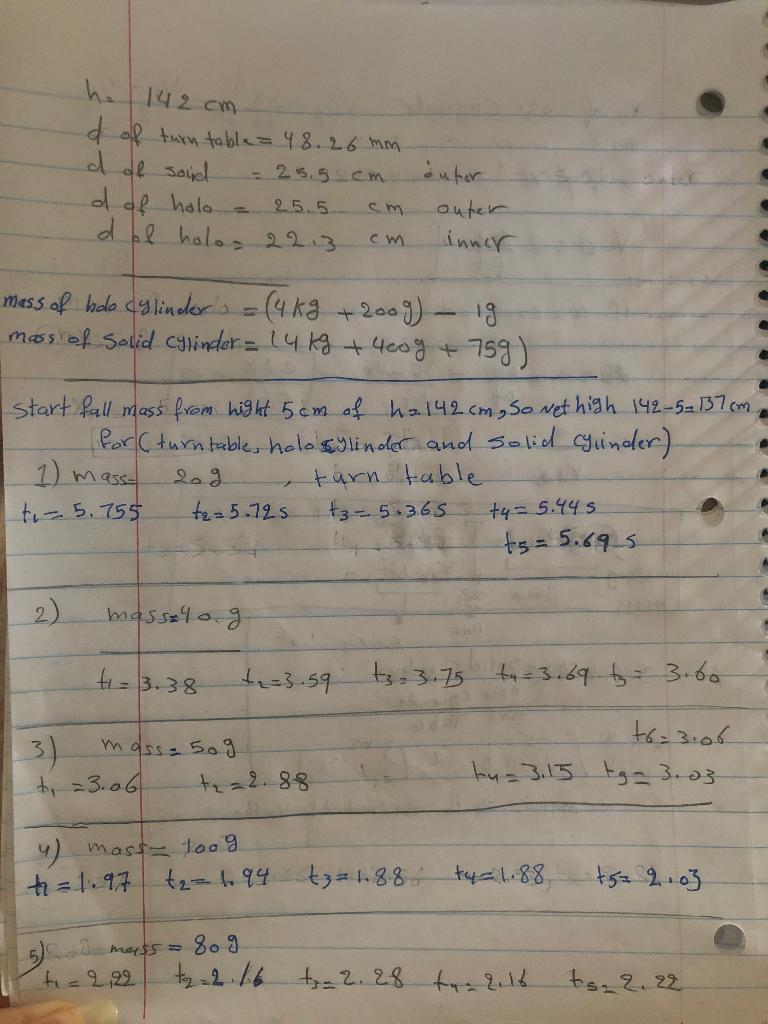 h= 142 cm
d of turn table = 48.26 mm
d of solid = 25.5 cm outer
d of holo = 25.5 cm outer
d of holo = 22.3 cm inner
mass of holo cylinder = (4 kg + 200g) - 1g
mass of solid cylinder = (4 kg + 400g + 75g)
start fall mass from hight 5 cm of h=142 cm, So net high 142-5=137 cm
for (turntable, holo cylinder and solid cylinder)
1) mass= 20g , turn table
t1= 5.755 t2=5.72s t3=5.36s t4= 5.44s
t5= 5.69 s
2) mass=40 g
t1= 3.38 t2=3.59 t3=3.75 t4=3.69 t5= 3.60
t6=3.06
3) mass= 50g
t1 =3.06 t2=2.88 t4=3.15 t5= 3.03
4) mass= 100g
t1 =1.97 t2= 1.94 t3=1.88 t4=1.88 t5= 2.03
5) mass = 80g
t1 = 2,22 t2=2.16 t3=2.28 t4=2.16 t5= 2.22